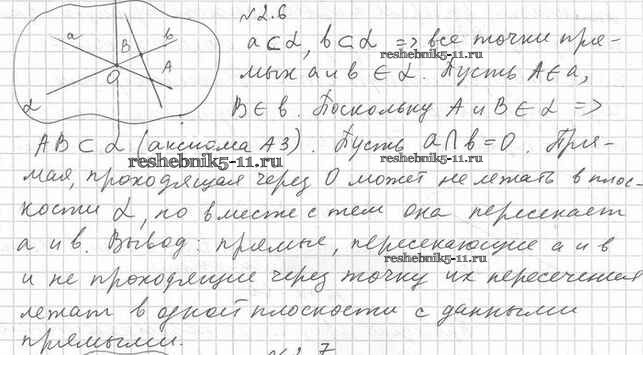 №2.6
a⊂α, b⊂α => все точки пря-
мых а и в ∈ α. Пусть A∈a,
B∈b. Поскольку A и B∈α =>
AB⊂α (аксиома А3). Пусть a∩b=O. Пря-
мая, проходящая через О может не лежать в плос-
кости α, но вместе с тем она пересекает
а и в. Вывод: прямые, пересекающие а и в
и не проходящие через точку их пересечения
лежат в одной плоскости с данными
прямыми.
a
B
b
O
A
α
reshebnik5-11.ru
reshebnik5-11.ru
reshebnik5-11.ru
reshebnik5-11.ru
№2.7